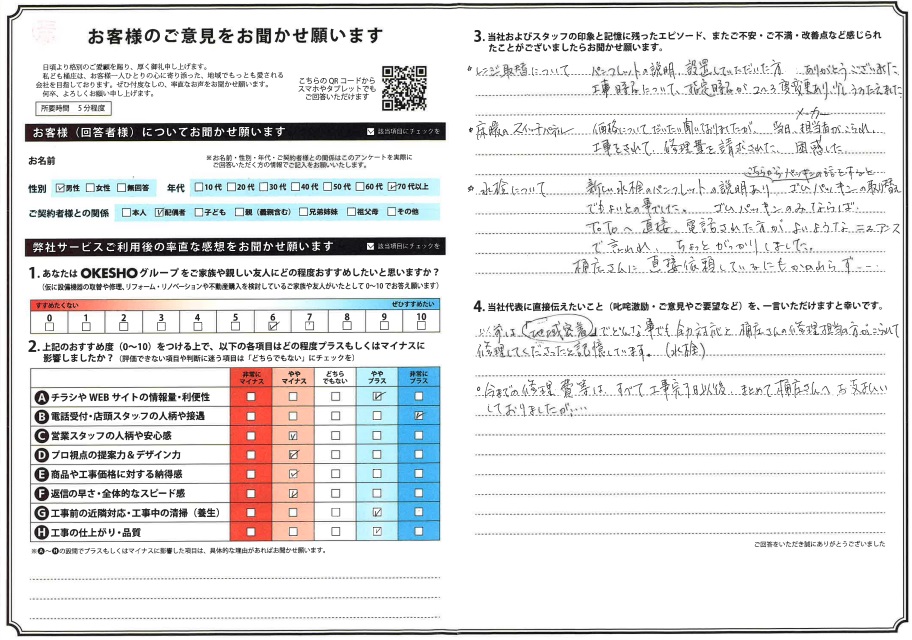 お客様のご意見をお聞かせ願います
日頃より格別のご愛顧を賜り、厚く御礼申し上げます。
私ども桶庄は、お客様一人ひとりの心に寄り添った、地域でもっとも愛される
会社を目指しております。ぜひ忖度なしの、率直なお声をお聞かせ願います。
何卒、よろしくお願い申し上げます。
こちらのQRコードから
スマホやタブレットでも
ご回答いただけます
所要時間 5分程度
お客様（回答者様）についてお聞かせ願います
該当項目にチェックを
お名前
※お名前・性別・年代・ご契約者様との関係はこのアンケートを実際に
ご回答いただく方の情報でご記入をお願いいたします。
性別 男性 女性 無回答 年代 10代 20代 30代 40代 50代 60代 70代以上
ご契約者様との関係 本人 配偶者 子ども 親（義親含む） 兄弟姉妹 祖父母 その他
弊社サービスご利用後の率直な感想をお聞かせ願います
該当項目にチェックを
1. あなたは OKESHO グループをご家族や親しい友人にどの程度おすすめしたいと思いますか？
（仮に設備機器の取替や修理、リフォーム・リノベーションや不動産購入を検討しているご家族や友人がいたとして0〜10でお答え願います）
すすめたくない ぜひすすめたい
0 1 2 3 4 5 6 7 8 9 10
2. 上記のおすすめ度（0〜10）をつける上で、以下の各項目はどの程度プラスもしくはマイナスに
影響しましたか？（評価できない項目や判断に迷う項目は「どちらでもない」にチェックを）
非常にマイナス ややマイナス どちらでもない ややプラス 非常にプラス
A チラシやWEBサイトの情報量・利便性
B 電話受付・店頭スタッフの人柄や接遇
C 営業スタッフの人柄や安心感
D プロ視点の提案力＆デザイン力
E 商品や工事価格に対する納得感
F 返信の早さ・全体的なスピード感
G 工事前の近隣対応・工事中の清掃（養生）
H 工事の仕上がり・品質
※A〜Hの設問でプラスもしくはマイナスに影響した項目は、具体的な理由があればお聞かせ願います。
3. 当社およびスタッフの印象と記憶に残ったエピソード、またご不安・ご不満・改善点など感じられ
たことがございましたらお聞かせ願います。
レンジ取替について パンフレットの説明、設置していただいた方 ありがとうございました
工事時間について、指定時間が
メーカー
床暖のスイッチパネル 価格についてだいたい聞いておりましたが、当日、担当者が
工事をされて、修理費を請求された、困惑した
こちらからパッキンの話をすると
水栓について 新しい水栓のパンフレットの説明あり ゴムパッキンの取替え
でもよいとの事でした。 ゴムパッキンのみならば
TOTOへ直接、電話された方がよいようなニュアンス
で言われ、ちょっとがっかりしました。
桶庄さんに直接依頼しているにもかかわらず…
4. 当社代表に直接伝えたいこと（叱咤激励・ご意見やご要望など）を、一言いただけますと幸いです。
以前は「地域密着」でどんな事でも 桶庄さんの修理担当の方が
修理してくださったと記憶しています。（水栓）
今までの修理費等は、すべて工事完了日以後、まとめて桶庄さんへお支払い
しておりましたが…
ご回答をいただき誠にありがとうございました